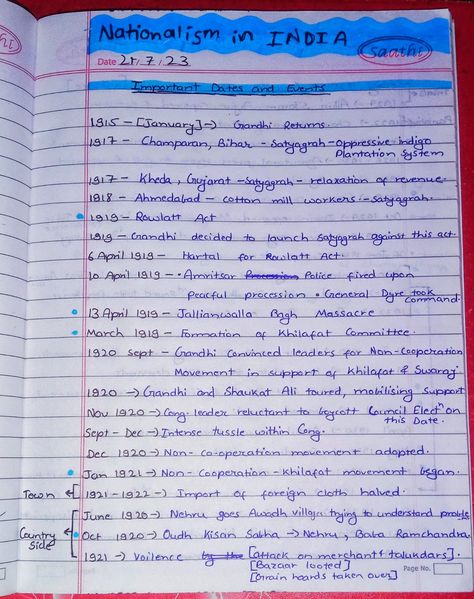 Nationalism in INDIA
saathi
Date 25.7.23
Important Dates and Events
1915 – [January] → Gandhi Returns.
1917 – Champaran, Bihar - Satyagrah - Oppressive indigo
Plantation System
1917 – Kheda, Gujarat - Satyagrah - relaxation of revenue.
1918 – Ahmedabad – cotton mill workers - Satyagrah.
1919 – Rowlatt Act
1919 – Gandhi decided to launch Satyagrah against this act.
6 April 1919 – Hartal for Rowlatt Act.
10 April 1919 – • Amritsar Procession Police fired upon
peaceful procession • General Dyre took
command.
13 April 1919 – Jallianwalla Bagh Massacre
March 1919 – Formation of Khilafat Committee.
1920 sept – Gandhi Convinced leaders for Non-Cooperation
Movement in support of Khilafat & Swaraj
1920 → Gandhi and Shaukat Ali toured, mobilising support
Nov 1920 → Cong. leader reluctant to boycott Council Electn on
this Date.
Sept - Dec → Intense tussle within Cong.
Dec 1920 → Non-co-operation movement adopted.
Jan 1921 → Non-Cooperation-Khilafat movement began.
Town
1921-1922 → Import of foreign cloth halved.
June 1920 → Nehru goes Awadh village trying to understand
Country side
Oct 1920 → Oudh Kisan Sabha → Nehru, Baba Ramchandra
1921 → Voilence by the [attack on merchant & talukdars].
[Bazaar looted]
[Grain hoards taken over]
Page No.